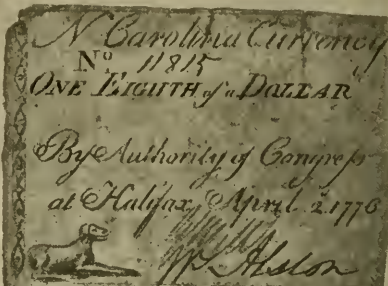 N Carolina Currency
No 11815
ONE EIGHTH of a DOLLAR
By Authority of Congress
at Halifax, April 2. 1776
W. Alston